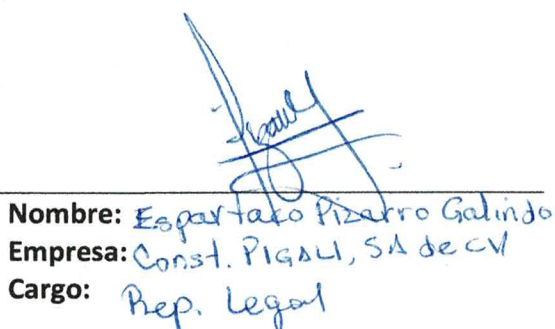 Nombre: Espartaco Pizarro Galindo
Empresa: Const. PIGALI, SA de CV
Cargo: Rep. Legal